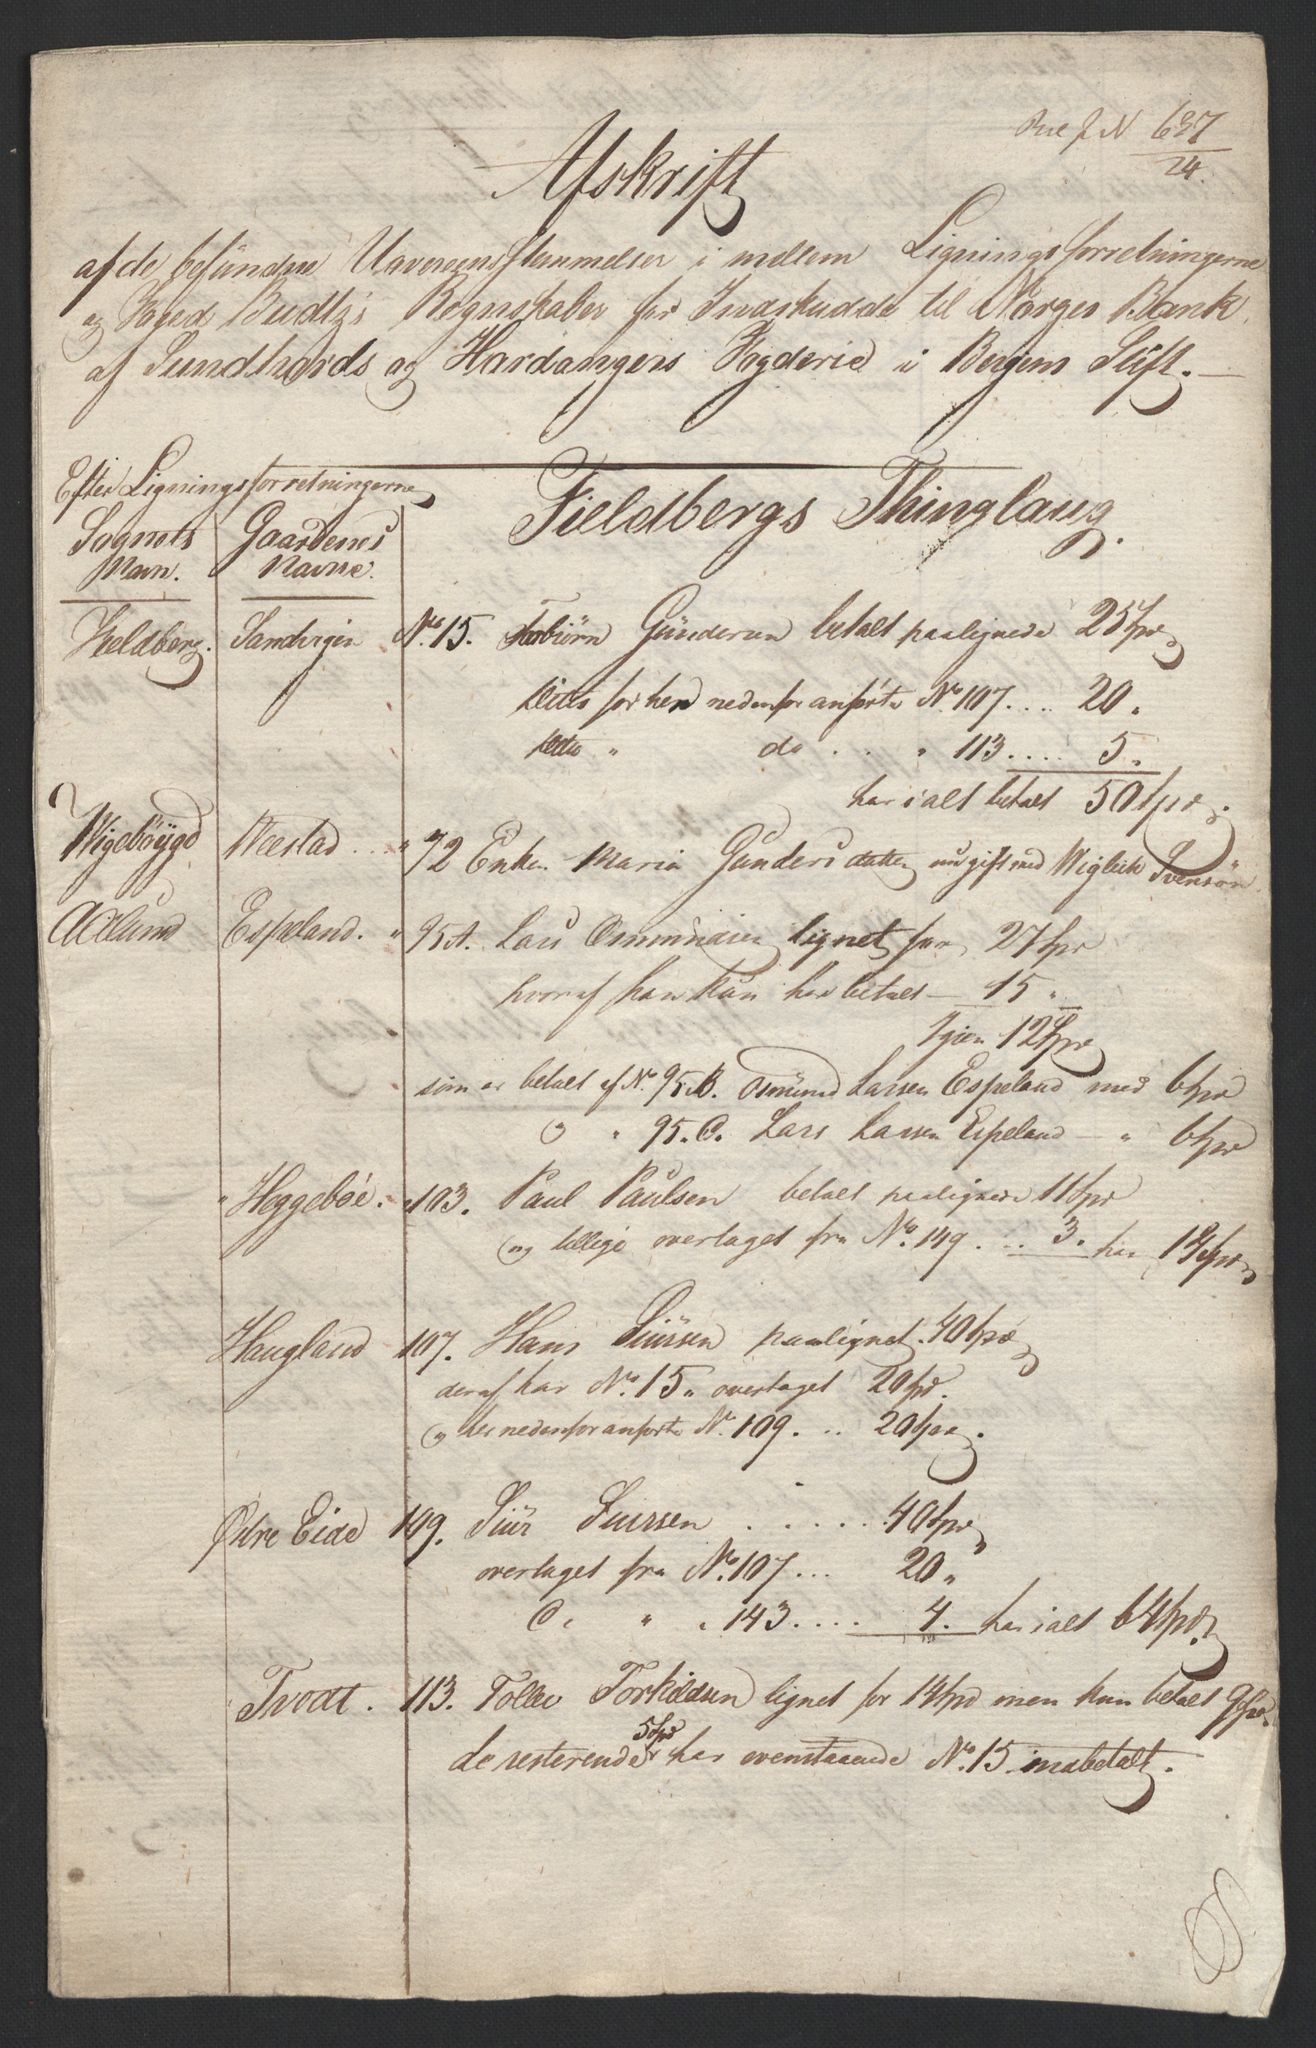 Afskrift
627
24.
af de befundne Uovereensstemmelser imellem Ligningsforretningerne
og Foged Budtz's Regnskaber for Indskudde til Norges Bank
af Sundhords og Hardangers Fogderie i Bergens Stift.
Efter Ligningsforretningerne
Fieldbergs Thinglaug.
Sognets Navn. Gaardenes Navne.
Fieldberg. Sandvigen No. 15. Torbiørn Gunderson betalt paalignede 25 Spd
Ditto for her nedenfor anførte No. 107 .... 20 "
Ditto " do . . " 113 .... 5 "
har ialt betalt 50 Spd
Wigebøygd Neestad .. " 72 Enken Maria Gundersdatter nu gift med Wiglech Svensøn
Aalund Espeland. " 95A. Lars Osmundsen lignet for 27 Spd
hvoraf han kun har betalt — 15 "
Igien 12 Spd
som er betalt af No. 95.B. Osmund Larsen Espeland med 6 Spd
og " 95.C. Lars Larsen Espeland — " 6 Spd
" Heggebøe. " 103. Paul Paulsen betalt paalignede 11 Spd
og tillige overtaget fra No. 149 . .. 3. har 14 Spd
Haugland 107. Hans Siursen paalignet 40 Spd
deraf har No. 15 " overtaget 20 Spd.
og her nedenfor anførte No. 109. .. 20 Spd.
Øvre Eide 109. Siur Siursen . . . . . 40 Spd
overtaget fra No. 107 ... 20 "
" " 143 .... 4. har ialt 64 Spd.
Tvedt. 113. Tollev Torkildsen lignet for 14 Spd men kun betalt 9 Spd.
5 Spd
de resterende har ovenstaaende No. 15 indbetalt.